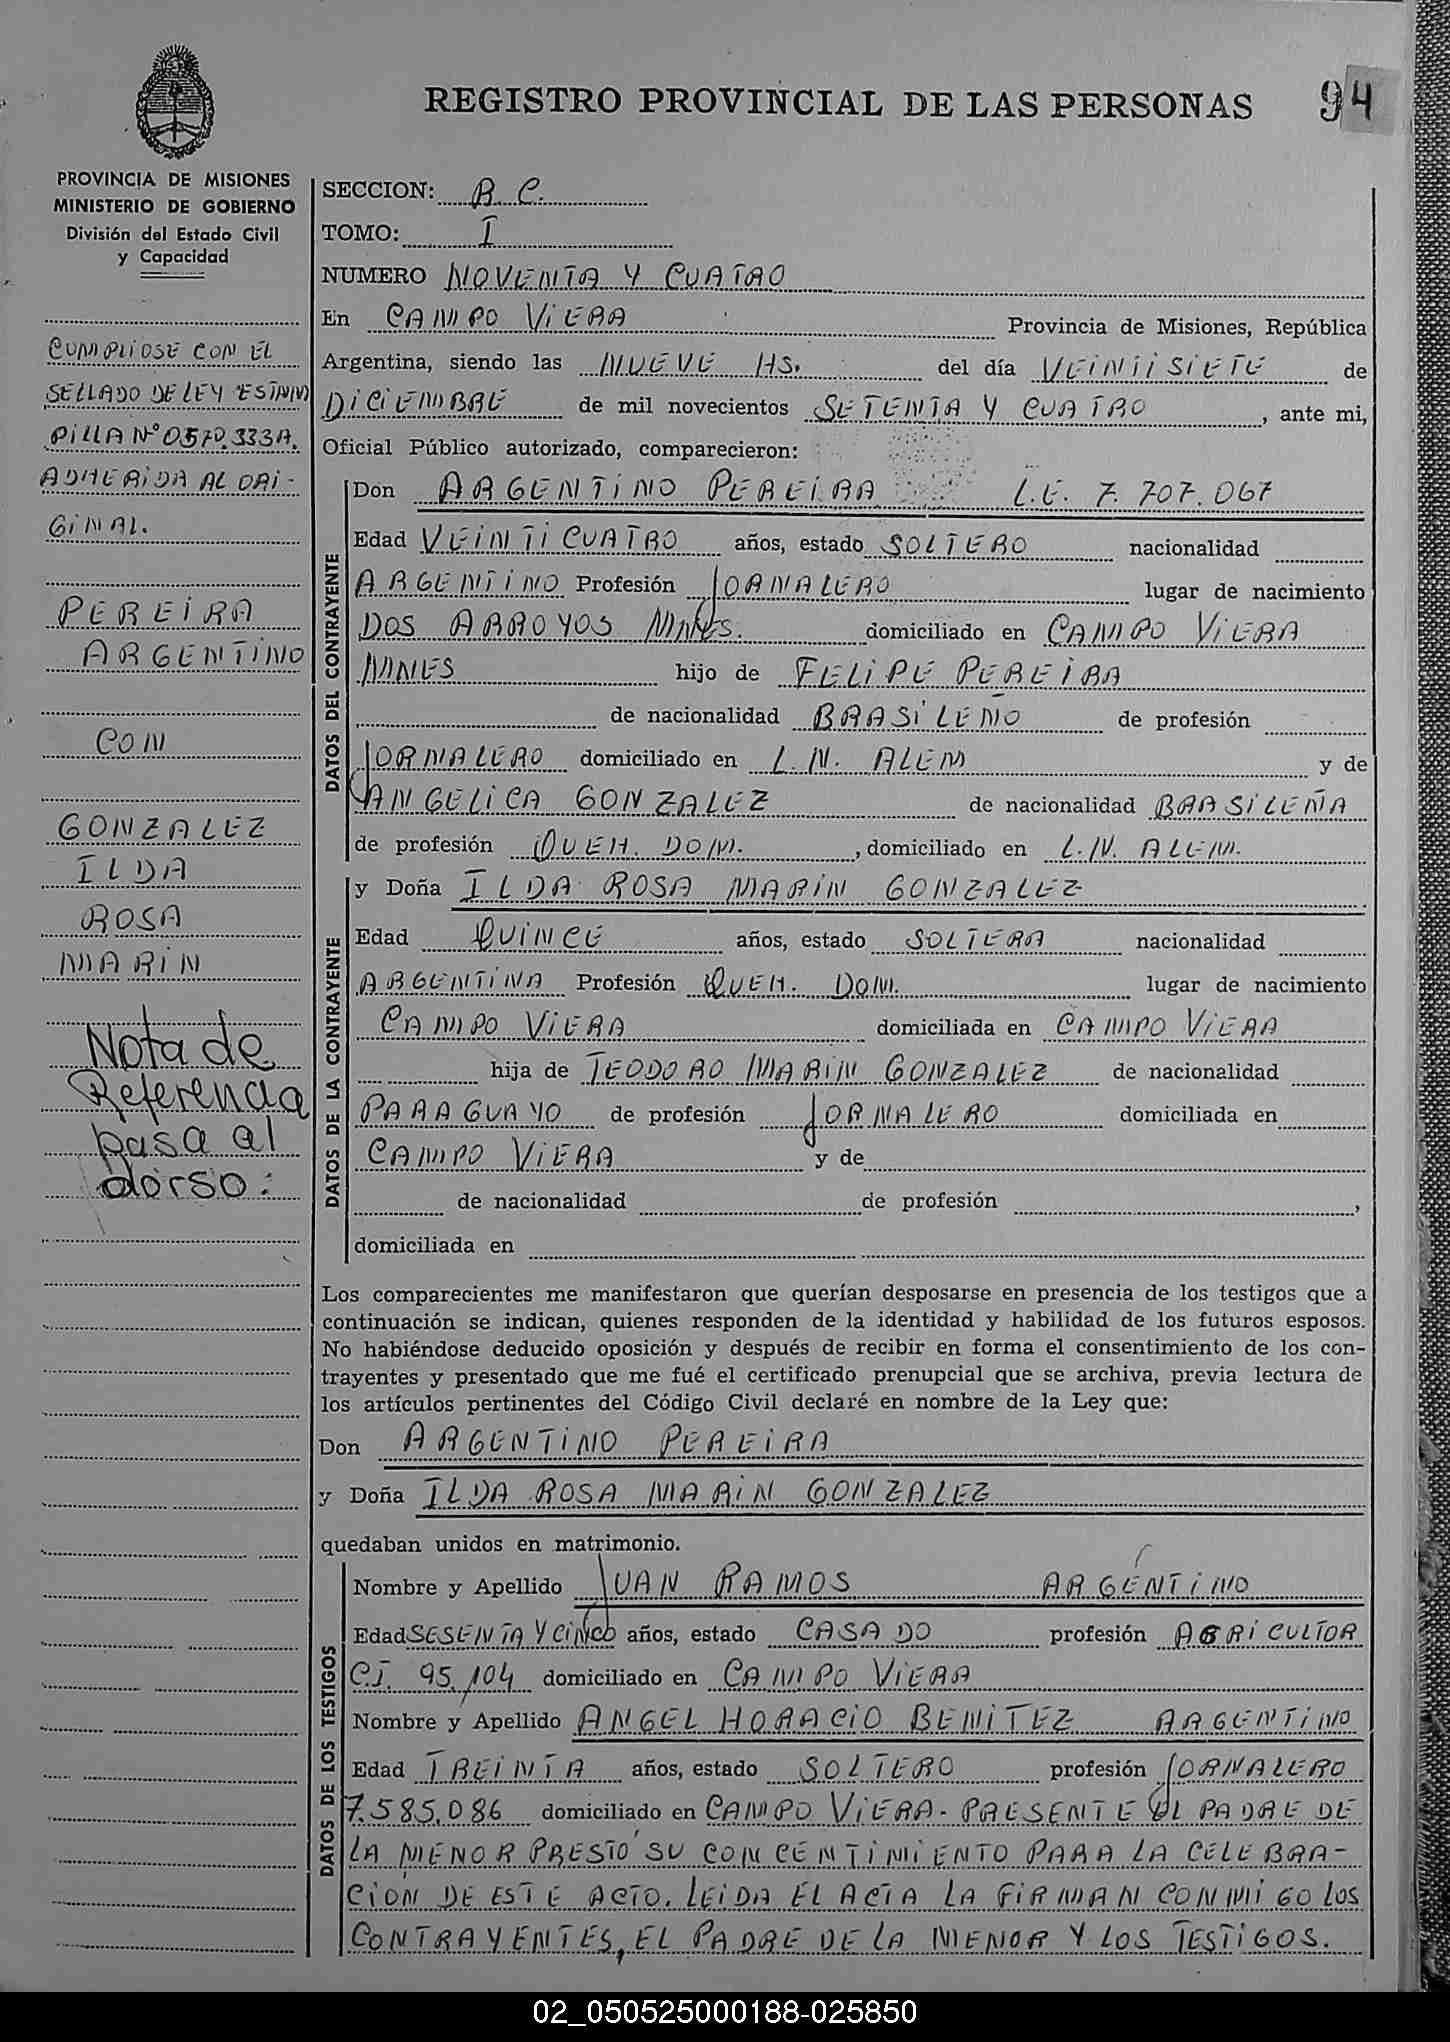 REGISTRO PROVINCIAL DE LAS PERSONAS 94
PROVINCIA DE MISIONES
MINISTERIO DE GOBIERNO
División del Estado Civil
y Capacidad
CUMPLIOSE CON EL
SELLADO DE LEY ESTAM
PILLA Nº 0570.333A.
ADHERIDA AL ORI-
GINAL.
PEREIRA
ARGENTINO
CON
GONZALEZ
ILDA
ROSA
MARIN
Nota de
Referencia
pasa al
dorso:
SECCION: B. C.
TOMO: I
NUMERO NOVENTA Y CUATRO
En CAMPO VIERA Provincia de Misiones, República
Argentina, siendo las NUEVE HS. del día VEINTISIETE de
DICIEMBRE de mil novecientos SETENTA Y CUATRO, ante mi,
Oficial Público autorizado, comparecieron:
DATOS DEL CONTRAYENTE
Don ARGENTINO PEREIRA L.E. 7.707.067
Edad VEINTICUATRO años, estado SOLTERO nacionalidad
ARGENTINO Profesión JORNALERO lugar de nacimiento
DOS ARROYOS MNES. domiciliado en CAMPO VIERA
MNES hijo de FELIPE PEREIRA
de nacionalidad BRASILEÑO de profesión
JORNALERO domiciliado en L. N. ALEM y de
ANGELICA GONZALEZ de nacionalidad BRASILEÑA
de profesión QUEH. DOM., domiciliado en L. N. ALEM.
DATOS DE LA CONTRAYENTE
y Doña ILDA ROSA MARIN GONZALEZ
Edad QUINCE años, estado SOLTERA nacionalidad
ARGENTINA Profesión QUEH. DOM. lugar de nacimiento
CAMPO VIERA domiciliada en CAMPO VIERA
hija de TEODORO MARIN GONZALEZ de nacionalidad
PARAGUAYO de profesión JORNALERO domiciliada en
CAMPO VIERA y de
de nacionalidad de profesión ,
domiciliada en
Los comparecientes me manifestaron que querían desposarse en presencia de los testigos que a
continuación se indican, quienes responden de la identidad y habilidad de los futuros esposos.
No habiéndose deducido oposición y después de recibir en forma el consentimiento de los con-
trayentes y presentado que me fué el certificado prenupcial que se archiva, previa lectura de
los artículos pertinentes del Código Civil declaré en nombre de la Ley que:
Don ARGENTINO PEREIRA
y Doña ILDA ROSA MARIN GONZALEZ
quedaban unidos en matrimonio.
DATOS DE LOS TESTIGOS
Nombre y Apellido JUAN RAMOS ARGENTINO
Edad SESENTA Y CINCO años, estado CASADO profesión AGRICULTOR
C.I. 95.104 domiciliado en CAMPO VIERA
Nombre y Apellido ANGEL HORACIO BENITEZ ARGENTINO
Edad TREINTA años, estado SOLTERO profesión JORNALERO
7.585.086 domiciliado en CAMPO VIERA - PRESENTE EL PADRE DE
LA MENOR PRESTO SU CONCENTIMIENTO PARA LA CELEBRA-
CION DE ESTE ACTO. LEIDA EL ACTA LA FIRMAN CONMIGO LOS
CONTRAYENTES, EL PADRE DE LA MENOR Y LOS TESTIGOS.
02_050525000188-025850